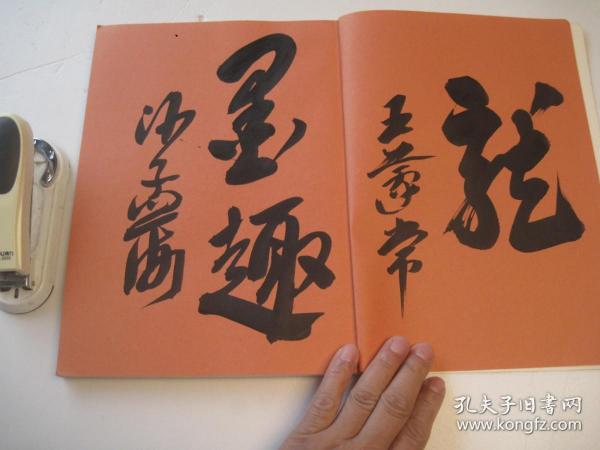 龍
王蘧常
墨趣
沙孟海
孔夫子旧书网
www.kongfz.com